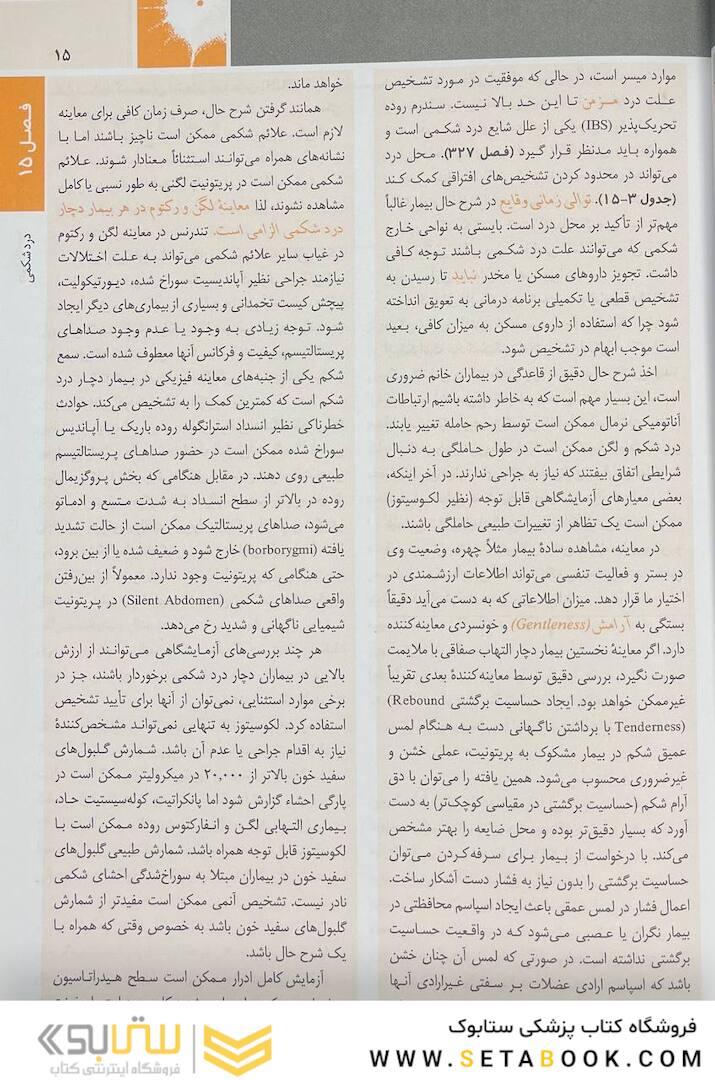 ۱۵
فصل ۱۵
درد شکمی
موارد میسر است، در حالی که موفقیت در مورد تشخیص
علت درد مزمن تا این حد بالا نیست. سندرم روده
تحریک‌پذیر (IBS) یکی از علل شایع درد شکمی است و
همواره باید مدنظر قرار گیرد (فصل ۳۲۷). محل درد
می‌تواند در محدود کردن تشخیص‌های افتراقی کمک کند
(جدول ۳-۱۵). توالی زمانی وقایع در شرح حال بیمار غالباً
مهم‌تر از تأکید بر محل درد است. بایستی به نواحی خارج
شکمی که می‌توانند علت درد شکمی باشند توجه کافی
داشت. تجویز داروهای مسکن یا مخدر نباید تا رسیدن به
تشخیص قطعی یا تکمیلی برنامه درمانی به تعویق انداخته
شود چرا که استفاده از داروی مسکن به میزان کافی، بعید
است موجب ابهام در تشخیص شود.
اخذ شرح حال دقیق از قاعدگی در بیماران خانم ضروری
است، این بسیار مهم است که به خاطر داشته باشیم ارتباطات
آناتومیکی نرمال ممکن است توسط رحم حامله تغییر یابند.
درد شکم و لگن ممکن است در طول حاملگی به دنبال
شرایطی اتفاق بیفتند که نیاز به جراحی ندارند. در آخر اینکه،
بعضی معیارهای آزمایشگاهی قابل توجه (نظیر لکوسیتوز)
ممکن است یک تظاهر از تغییرات طبیعی حاملگی باشند.
در معاینه، مشاهده سادهٔ بیمار مثلاً چهره، وضعیت وی
در بستر و فعالیت تنفسی می‌تواند اطلاعات ارزشمندی در
اختیار ما قرار دهد. میزان اطلاعاتی که به دست می‌آید دقیقاً
بستگی به آرامش (Gentleness) و خونسردی معاینه‌کننده
دارد. اگر معاینهٔ نخستین بیمار دچار التهاب صفاقی با ملایمت
صورت نگیرد، بررسی دقیق توسط معاینه‌کنندهٔ بعدی تقریباً
غیرممکن خواهد بود. ایجاد حساسیت برگشتی (Rebound
Tenderness) با برداشتن ناگهانی دست به هنگام لمس
عمیق شکم در بیمار مشکوک به پریتونیت، عملی خشن و
غیرضروری محسوب می‌شود. همین یافته را می‌توان با دق
آرام شکم (حساسیت برگشتی در مقیاسی کوچک‌تر) به دست
آورد که بسیار دقیق‌تر بوده و محل ضایعه را بهتر مشخص
می‌کند. با درخواست از بیمار برای سرفه کردن می‌توان
حساسیت برگشتی را بدون نیاز به فشار دست آشکار ساخت.
اعمال فشار در لمس عمقی باعث ایجاد اسپاسم محافظتی در
بیمار نگران یا عصبی می‌شود که در واقعیت حساسیت
برگشتی نداشته است. در صورتی که لمس آن چنان خشن
باشد که اسپاسم ارادی عضلات بر سفتی غیرارادی آنها
خواهد ماند.
همانند گرفتن شرح حال، صرف زمان کافی برای معاینه
لازم است. علائم شکمی ممکن است ناچیز باشند اما با
نشانه‌های همراه می‌توانند استثنائاً معنادار شوند. علائم
شکمی ممکن است در پریتونیت لگنی به طور نسبی یا کامل
مشاهده نشوند، لذا معاینهٔ لگن و رکتوم در هر بیمار دچار
درد شکمی الزامی است. تندرنس در معاینه لگن و رکتوم
در غیاب سایر علائم شکمی می‌تواند به علت اختلالات
نیازمند جراحی نظیر آپاندیسیت سوراخ شده، دیورتیکولیت،
پیچش کیست تخمدانی و بسیاری از بیماری‌های دیگر ایجاد
شود. توجه زیادی به وجود یا عدم وجود صداهای
پریستالتیسم، کیفیت و فرکانس آنها معطوف شده است. سمع
شکم یکی از جنبه‌های معاینه فیزیکی در بیمار دچار درد
شکم است که کمترین کمک را به تشخیص می‌کند. حوادث
خطرناکی نظیر انسداد استرانگوله روده باریک یا آپاندیس
سوراخ شده ممکن است در حضور صداهای پریستالتیسم
طبیعی روی دهند. در مقابل هنگامی که بخش پروگزیمال
روده در بالاتر از سطح انسداد به شدت متسع و ادماتو
می‌شود، صداهای پریستالتیک ممکن است از حالت تشدید
یافته (borborygmi) خارج شود و ضعیف شده یا از بین برود،
حتی هنگامی که پریتونیت وجود ندارد. معمولاً از بین‌رفتن
واقعی صداهای شکمی (Silent Abdomen) در پریتونیت
شیمیایی ناگهانی و شدید رخ می‌دهد.
هر چند بررسی‌های آزمایشگاهی می‌توانند از ارزش
بالایی در بیماران دچار درد شکمی برخوردار باشند، جز در
برخی موارد استثنایی، نمی‌توان از آنها برای تأیید تشخیص
استفاده کرد. لکوسیتوز به تنهایی نمی‌تواند مشخص‌کنندهٔ
نیاز به اقدام جراحی یا عدم آن باشد. شمارش گلبول‌های
سفید خون بالاتر از ۲۰,۰۰۰ در میکرولیتر ممکن است در
پارگی احشاء گزارش شود اما پانکراتیت، کوله‌سیستیت حاد،
بیماری التهابی لگن و انفارکتوس روده ممکن است با
لکوسیتوز قابل توجه همراه باشد. شمارش طبیعی گلبول‌های
سفید خون در بیماران مبتلا به سوراخ‌شدگی احشای شکمی
نادر نیست. تشخیص آنمی ممکن است مفیدتر از شمارش
گلبول‌های سفید خون باشد به خصوص وقتی که همراه با
یک شرح حال باشد.
آزمایش کامل ادرار ممکن است سطح هیدراتاسیون
فروشگاه کتاب پزشکی ستابوک
WWW.SETABOOK.COM
ستابوک
فروشگاه اینترنتی کتاب